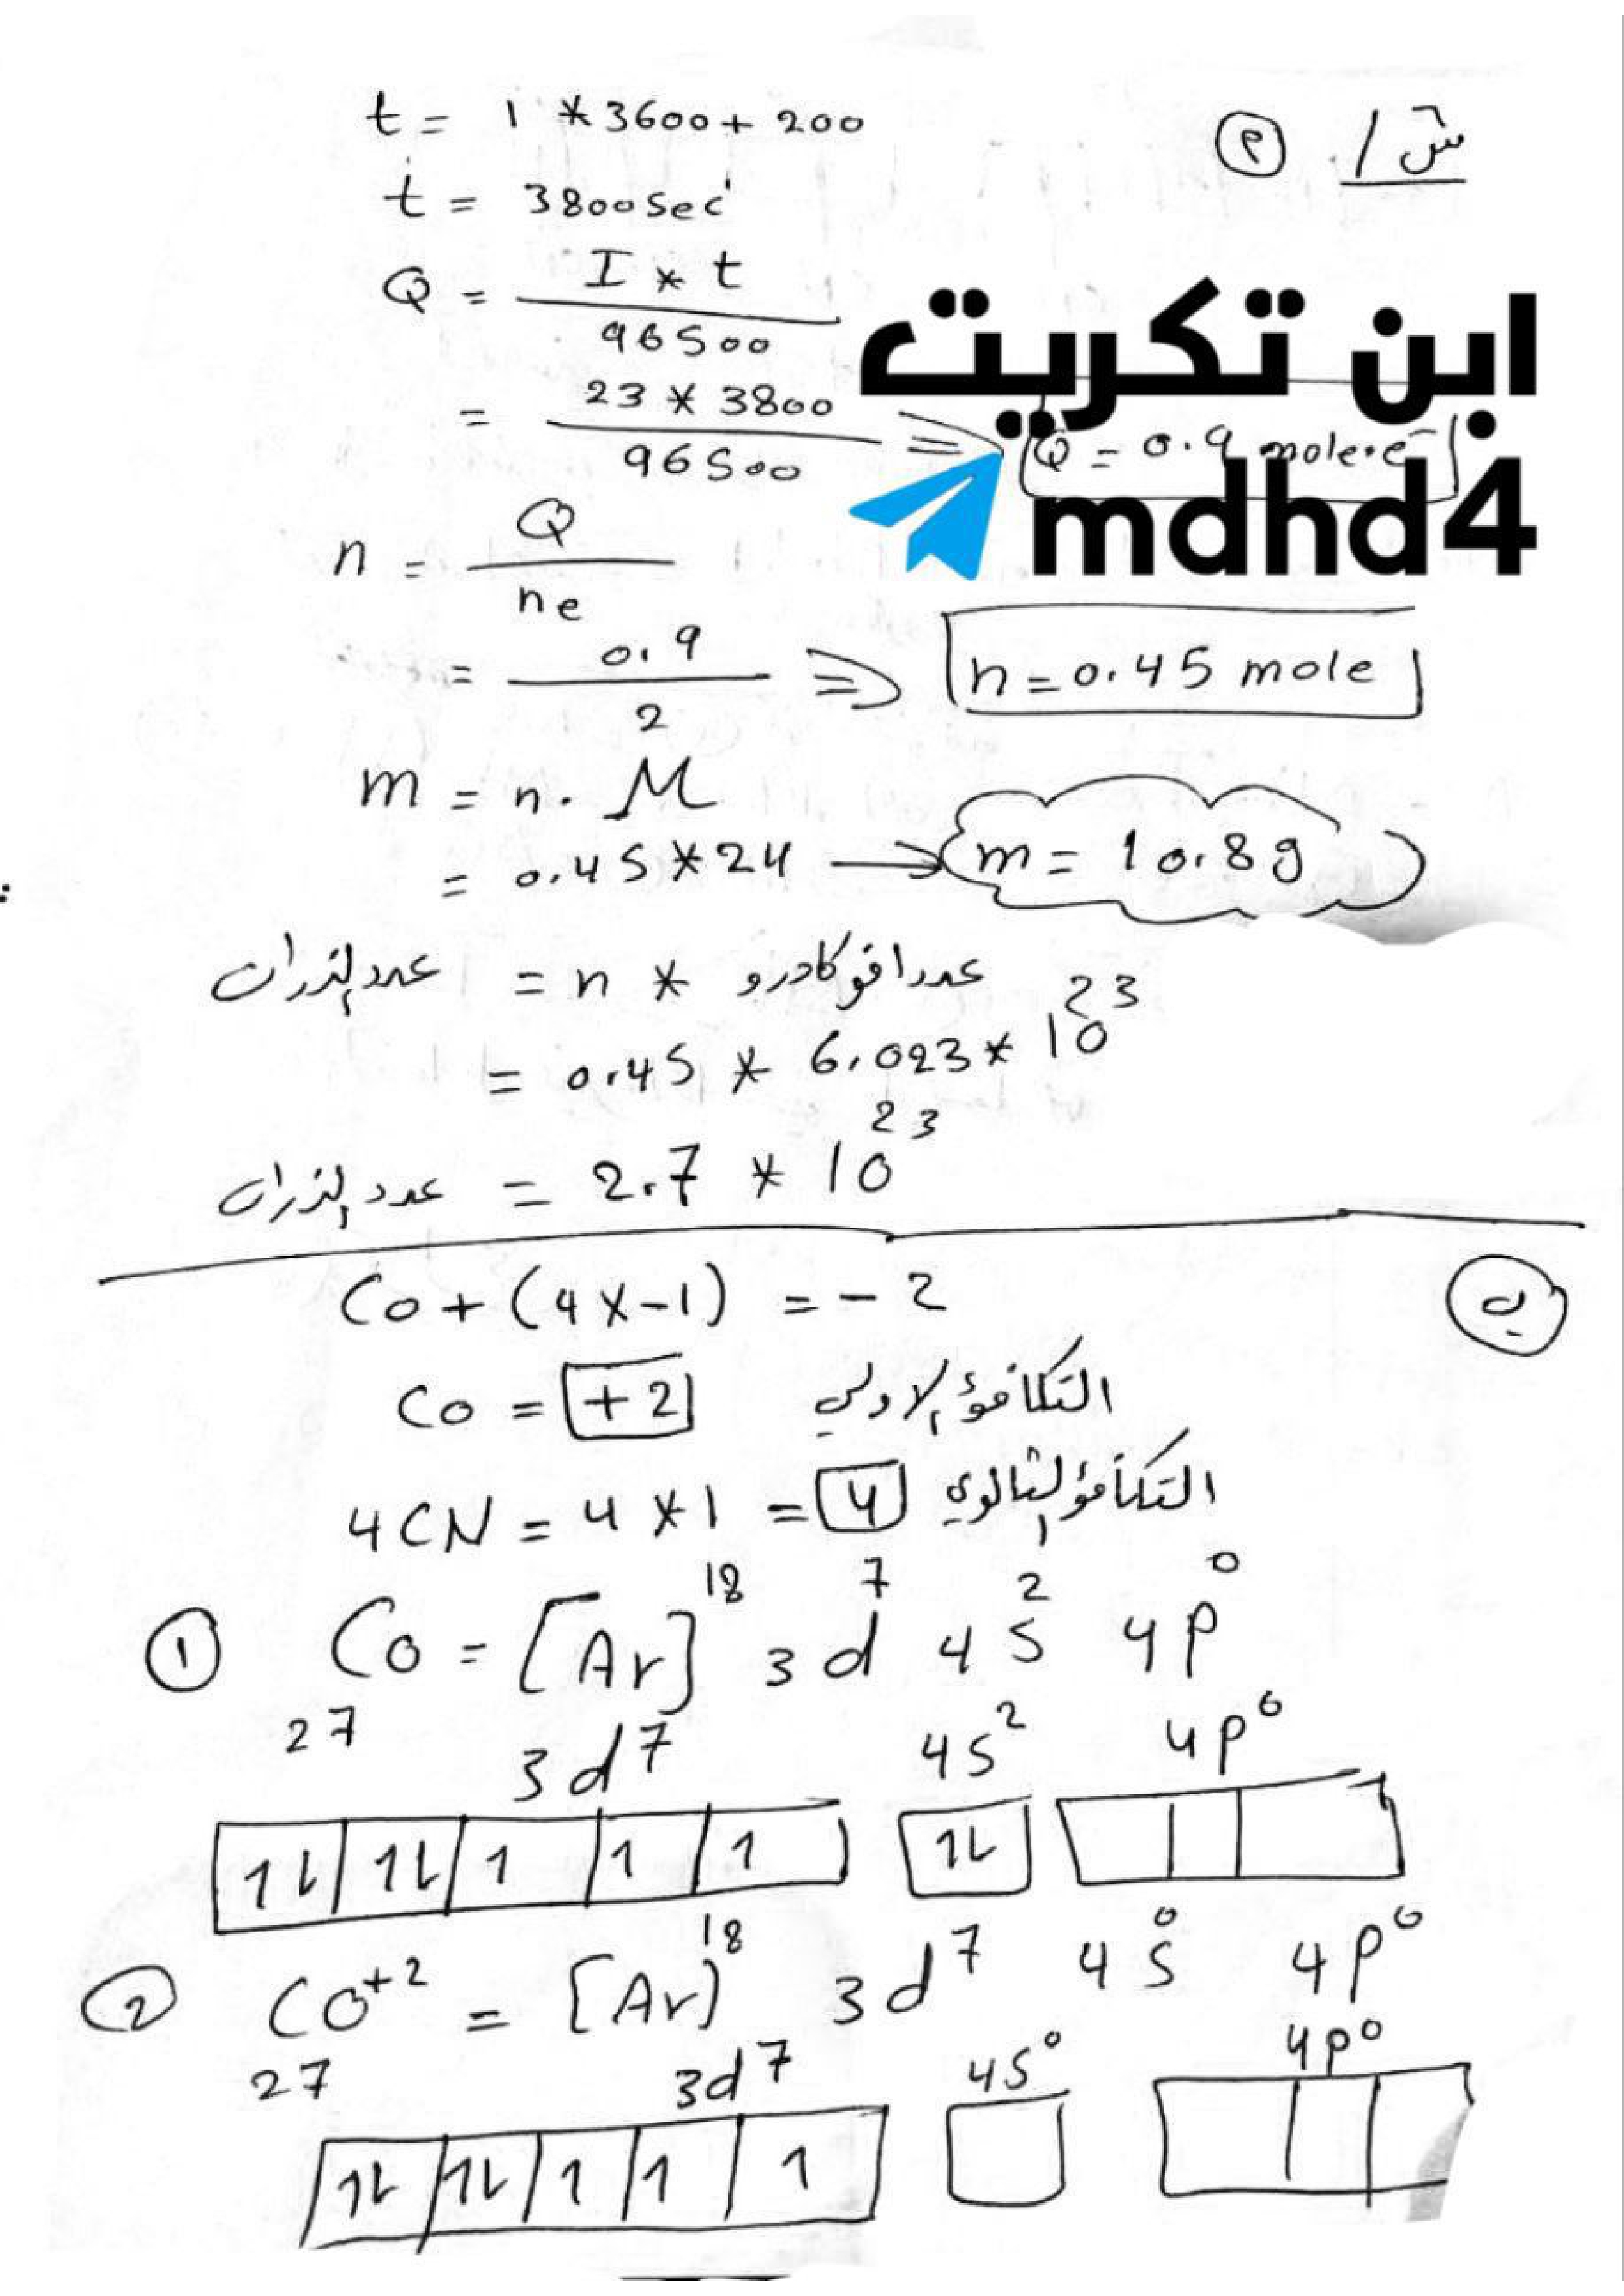 س1/ (م)
t = 1 * 3600 + 200
t = 3800 sec
Q = I * t / 96500
= 23 * 3800 / 96500 ⇒ Q = 0.9 mole.e⁻
ابن تكريت
mdhd4
n = Q / ne
= 0.9 / 2 ⇒ n = 0.45 mole
m = n . M
= 0.45 * 24 → m = 10.8 g
عدد الذرات = n * عدد افوكادرو
= 0.45 * 6.023 * 10²³
عدد الذرات = 2.7 * 10²³
(ب)
Co + (4 x -1) = -2
Co = +2 التكافؤ الاولي
4CN = 4 * 1 = 4 التكافؤ الثانوي
① ₂₇Co = [Ar]¹⁸ 3d⁷ 4S² 4P⁰
3d⁷ 4S² 4P⁰
1L 1L 1 1 1 1L
② ₂₇Co⁺² = [Ar]¹⁸ 3d⁷ 4S⁰ 4P⁰
3d⁷ 4S⁰ 4P⁰
1L 1L 1 1 1